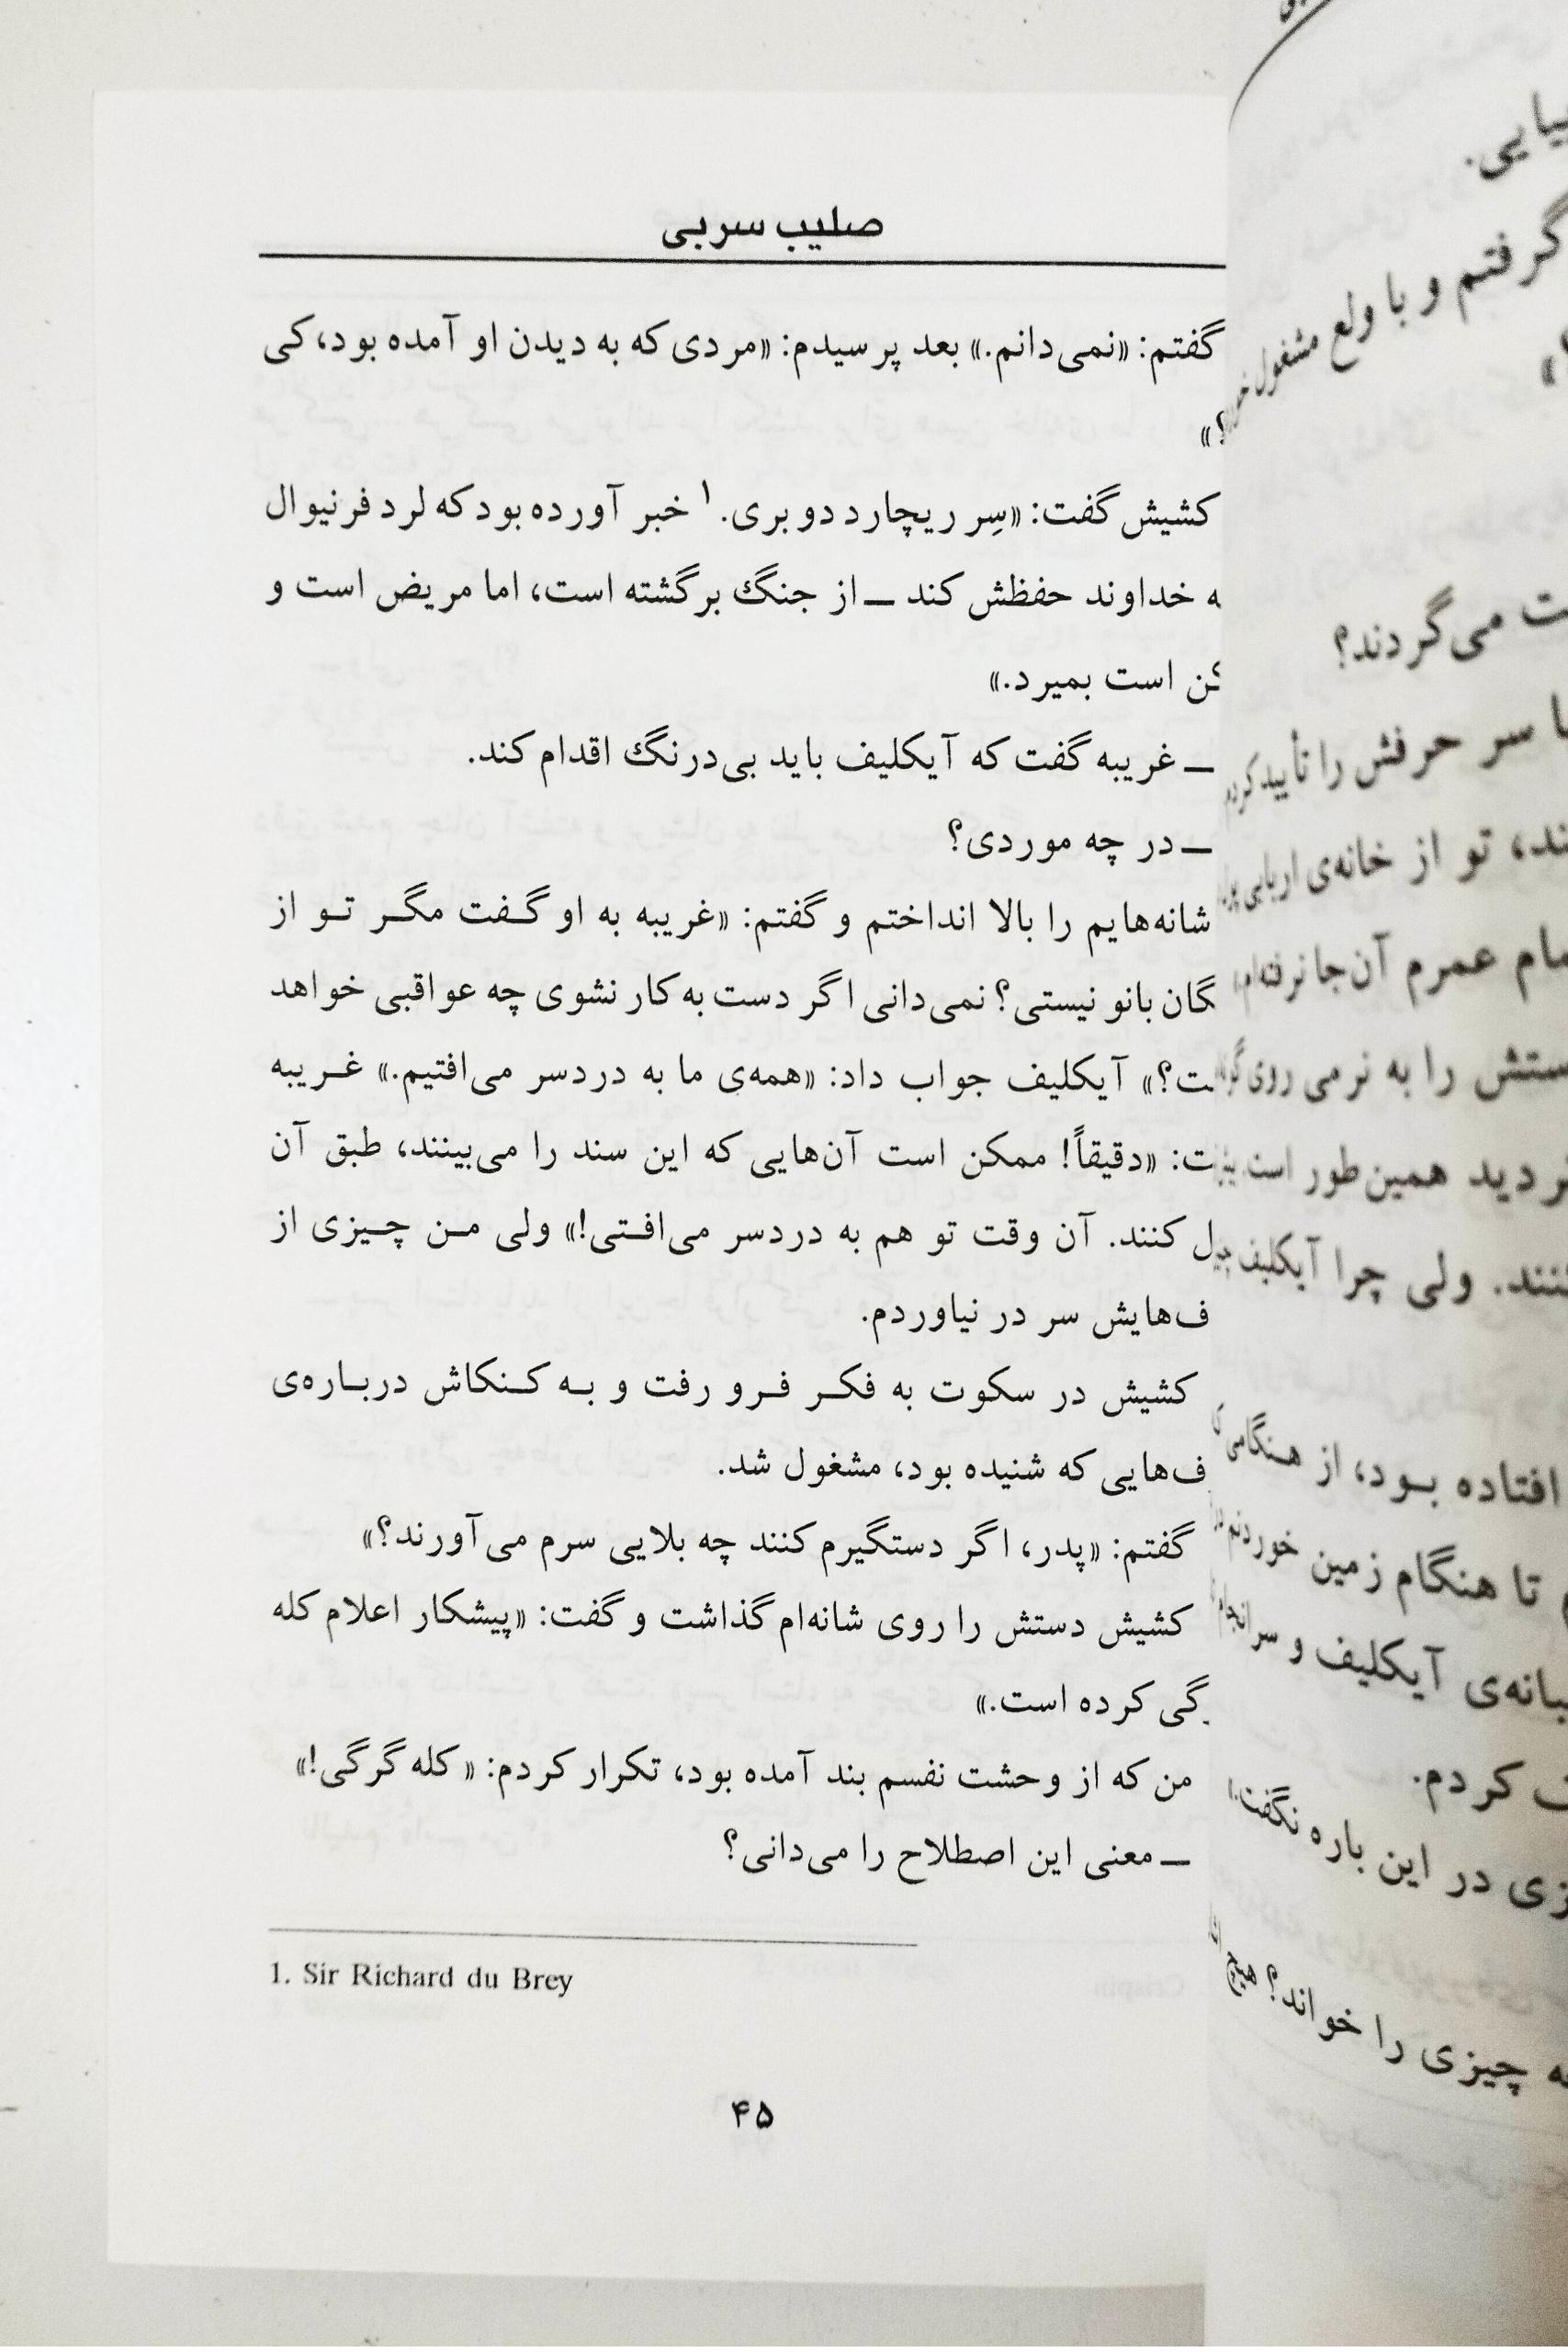 صلیب سربی
گفتم: «نمی‌دانم.» بعد پرسیدم: «مردی که به دیدن او آمده بود، کی
؟»
کشیش گفت: «سِر ریچارد دو بری.۱ خبر آورده بود که لرد فرنیوال
ه خداوند حفظش کند ـ از جنگ برگشته است، اما مریض است و
کن است بمیرد.»
ـ غریبه گفت که آیکلیف باید بی‌درنگ اقدام کند.
ـ در چه موردی؟
شانه‌هایم را بالا انداختم و گفتم: «غریبه به او گفت مگر تو از
گان بانو نیستی؟ نمی‌دانی اگر دست به کار نشوی چه عواقبی خواهد
ت؟» آیکلیف جواب داد: «همه‌ی ما به دردسر می‌افتیم.» غریبه
ت: «دقیقاً! ممکن است آن‌هایی که این سند را می‌بینند، طبق آن
ل کنند. آن وقت تو هم به دردسر می‌افتی!» ولی من چیزی از
ف‌هایش سر در نیاوردم.
کشیش در سکوت به فکر فرو رفت و به کنکاش درباره‌ی
ف‌هایی که شنیده بود، مشغول شد.
گفتم: «پدر، اگر دستگیرم کنند چه بلایی سرم می‌آورند؟»
کشیش دستش را روی شانه‌ام گذاشت و گفت: «پیشکار اعلام کله
گی کرده است.»
من که از وحشت نفسم بند آمده بود، تکرار کردم: «کله گرگی!»
ـ معنی این اصطلاح را می‌دانی؟
1. Sir Richard du Brey
۴۵
یایی.
گرفتم و با ولع مشغول
ت می‌گردند؟
ا سر حرفش را تأیید کردم
ند، تو از خانه‌ی اربابی
مام عمرم آن‌جا نرفته‌ام
ستش را به نرمی روی
ردید همین‌طور است
کنند. ولی چرا آیکلیف
افتاده بود، از هنگامی
تا هنگام زمین خوردنم
بانه‌ی آیکلیف و سرانجام
ت کردم.
زی در این باره نگفت
ه چیزی را خواند؟ هیچ